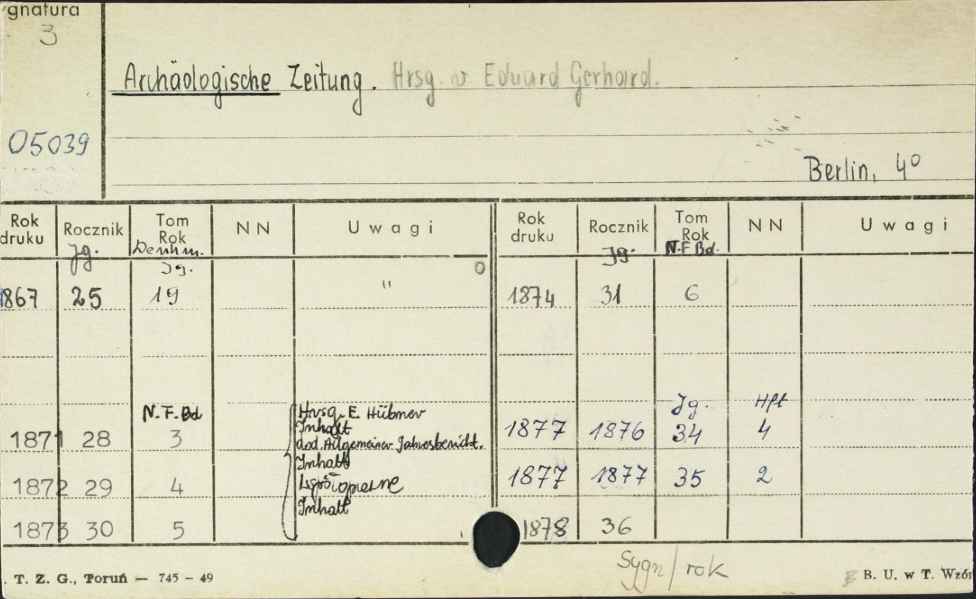 gnatura
3
Archäologische Zeitung. Hrsg. v Eduard Gerhard.
05039
Berlin, 4º
Rok druku Rocznik Tom Rok NN Uwagi Rok druku Rocznik Tom Rok NN Uwagi
Jg. Denkm. Jg. Jg. N.F.Bd.
1867 25 19 " 1874 31 6
N.F.Bd Hrsg. E. Hübner Jg. Hft
Inhalt
1871 28 3 dod. Allgemeiner Jahresbericht. 1877 1876 34 4
Inhalt
1872 29 4 1877 1877 35 2
Inhalt
1873 30 5 1878 36
Sygn/rok
. T. Z. G., Toruń — 745 - 49 B. U. w T. Wzór